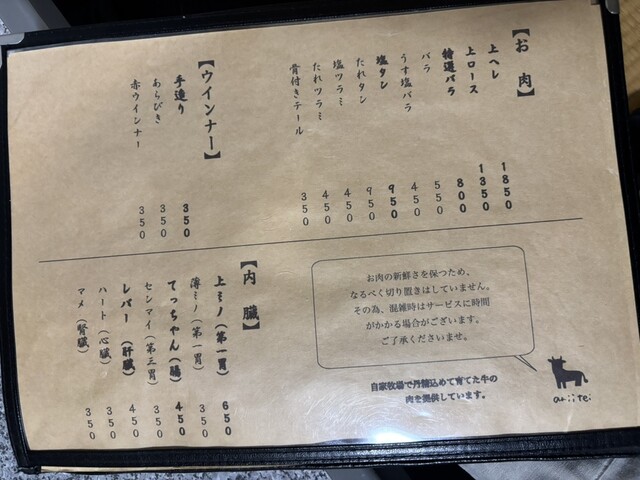 【お肉】
上ヘレ 1850
上ロース 1350
特選バラ 800
バラ 550
うす塩バラ 450
塩タン 950
たれタン 950
塩ツラミ 450
たれツラミ 450
骨付きテール 350
【ウインナー】
手造り 350
あらびき 350
赤ウインナー 350
お肉の新鮮さを保つため、
なるべく切り置きはしていません。
その為、混雑時はサービスに時間
がかかる場合がございます。
ご了承くださいませ。
自家牧場で丹精込めて育てた牛の
肉を提供しています。
【内臓】
上ミノ（第一胃） 650
薄ミノ（第一胃） 350
てっちゃん（腸） 450
センマイ（第三胃） 350
レバー（肝臓） 450
ハート（心臓） 350
マメ（腎臓） 350